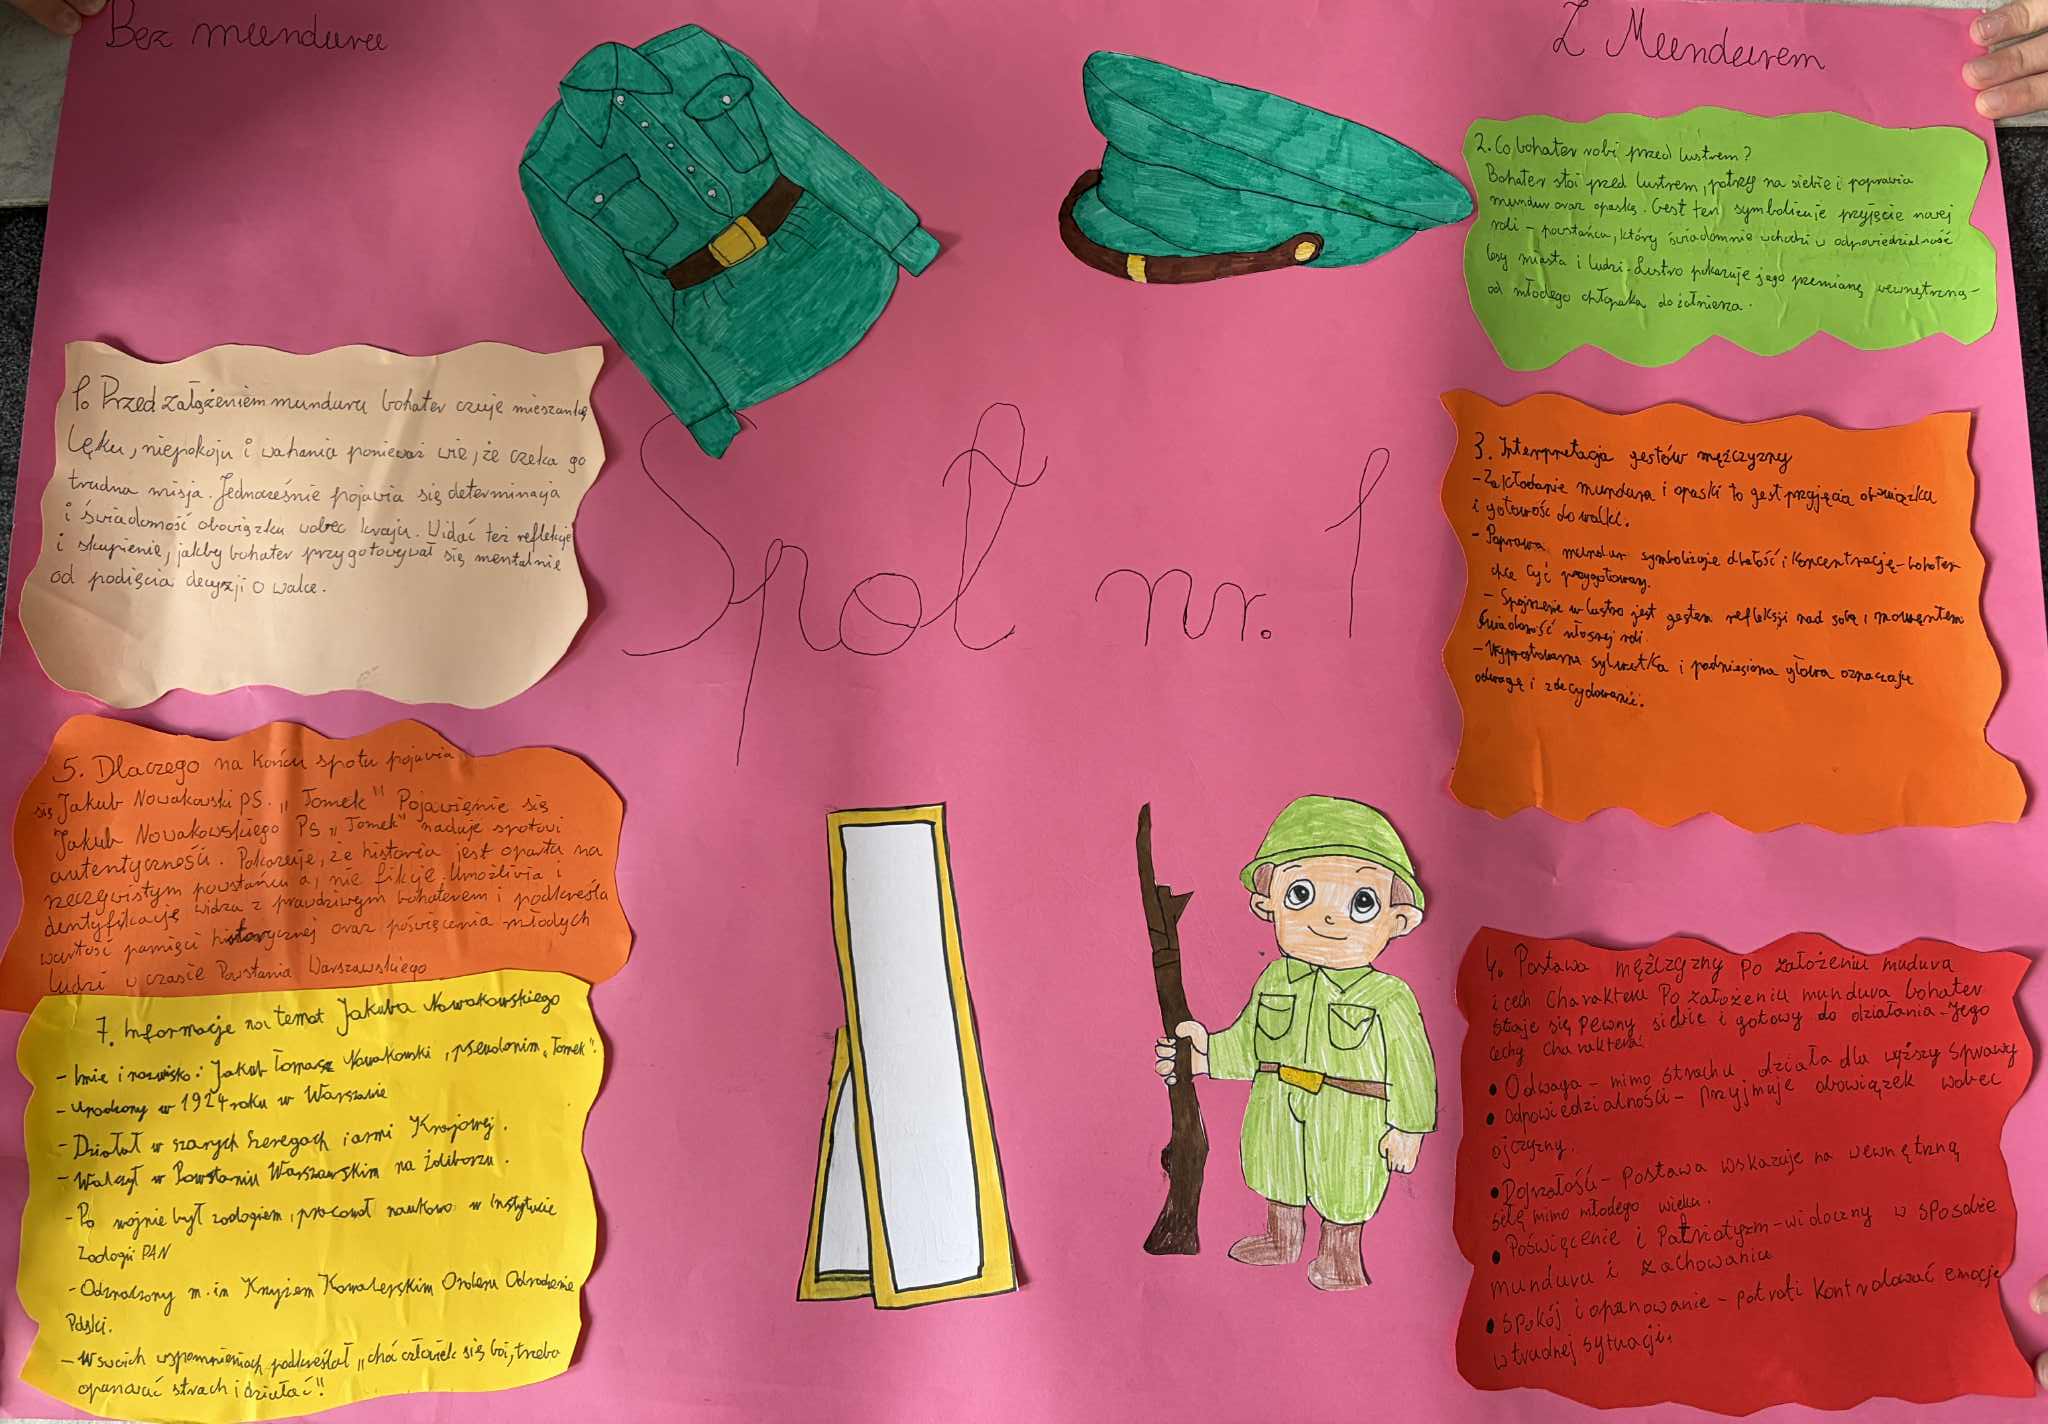 Bez munduru
Z Mundurem
Spot nr. 1
1. Przed założeniem munduru bohater czuje mieszankę
lęku, niepokoju i wahania ponieważ wie, że czeka go
trudna misja. Jednocześnie pojawia się determinacja
i świadomość obowiązku wobec kraju. Widać też refleksję
i skupienie, jakby bohater przygotowywał się mentalnie
od podjęcia decyzji o walce.
2. Co bohater robi przed lustrem?
Bohater stoi przed lustrem, patrzy na siebie i poprawia
mundur oraz opaskę. Gest ten symbolizuje przyjęcie nowej
roli - powstańca, który świadomie wchodzi w odpowiedzialność
losy miasta i ludzi. Lustro pokazuje jego przemianę wewnętrzną -
od młodego chłopaka do żołnierza.
3. Interpretacja gestów mężczyzny
- Zakładanie munduru i opaski to gest przyjęcia obowiązku
i gotowość do walki.
- Poprawa mundur symbolizuje dbałość i koncentrację - bohater
chce być przygotowany.
- Spojrzenie w lustro jest gestem refleksji nad sobą i momentem
świadomość własnej roli.
- Wyprostowana sylwetka i podniesiona głowa oznaczają
odwagę i zdecydowanie.
4. Postawa mężczyzny po założeniu mudura
i cech charakteru Po założeniu mundura bohater
staje się pewny siebie i gotowy do działania. Jego
cechy charakteru:
• Odwaga - mimo strachu działa dla wyższy sprawy
• odpowiedzialność - przyjmuje obowiązek wobec
ojczyzny.
• Dojrzałość - postawa wskazuje na wewnętrzną
siłę mimo młodego wieku.
• Poświęcenie i patriotyzm - widoczny w sposobie
munduru i zachowaniu
• spokój i opanowanie - potrafi kontrolować emocje
w trudnej sytuacji.
5. Dlaczego na końcu spotu pojawia
się Jakub Nowakowski PS. „Tomek" Pojawienie się
Jakub Nowakowskiego PS „Tomek" nadaje spotowi
autentyczności. Pokazuje, że historia jest oparta na
rzeczywistym powstańcu a, nie fikcje. Umożliwia i
dentyfikację widza z prawdziwym bohaterem i podkreśla
wartość pamięci historycznej oraz poświęcenia młodych
ludzi w czasie Powstania Warszawskiego
7. Informacje na temat Jakuba Nowakowskiego
- Imie i nazwisko: Jakub Tomasz Nowakowski, pseudonim „Tomek".
- urodzony w 1924 roku w Warszawie
- Działał w szarych Szeregach i armi Krajowej.
- Walczył w Powstaniu Warszawskim na Żoliborzu.
- Po wojnie był zoologiem, pracował naukowo w Instytucie
Zoologii PAN
- Odznaczony m.in Krzyżem Kawalerskim Orderu Odrodzenie
Polski.
- W swoich wspomnieniach podkreślał „choć człowiek się boi, trzeba
opanować strach i działać"!